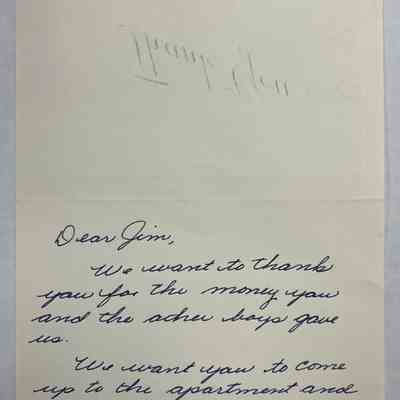 Thank You
Dear Jim,
We want to thank
you for the money you
and the other boys gave
us.
We want you to come
up to the apartment and